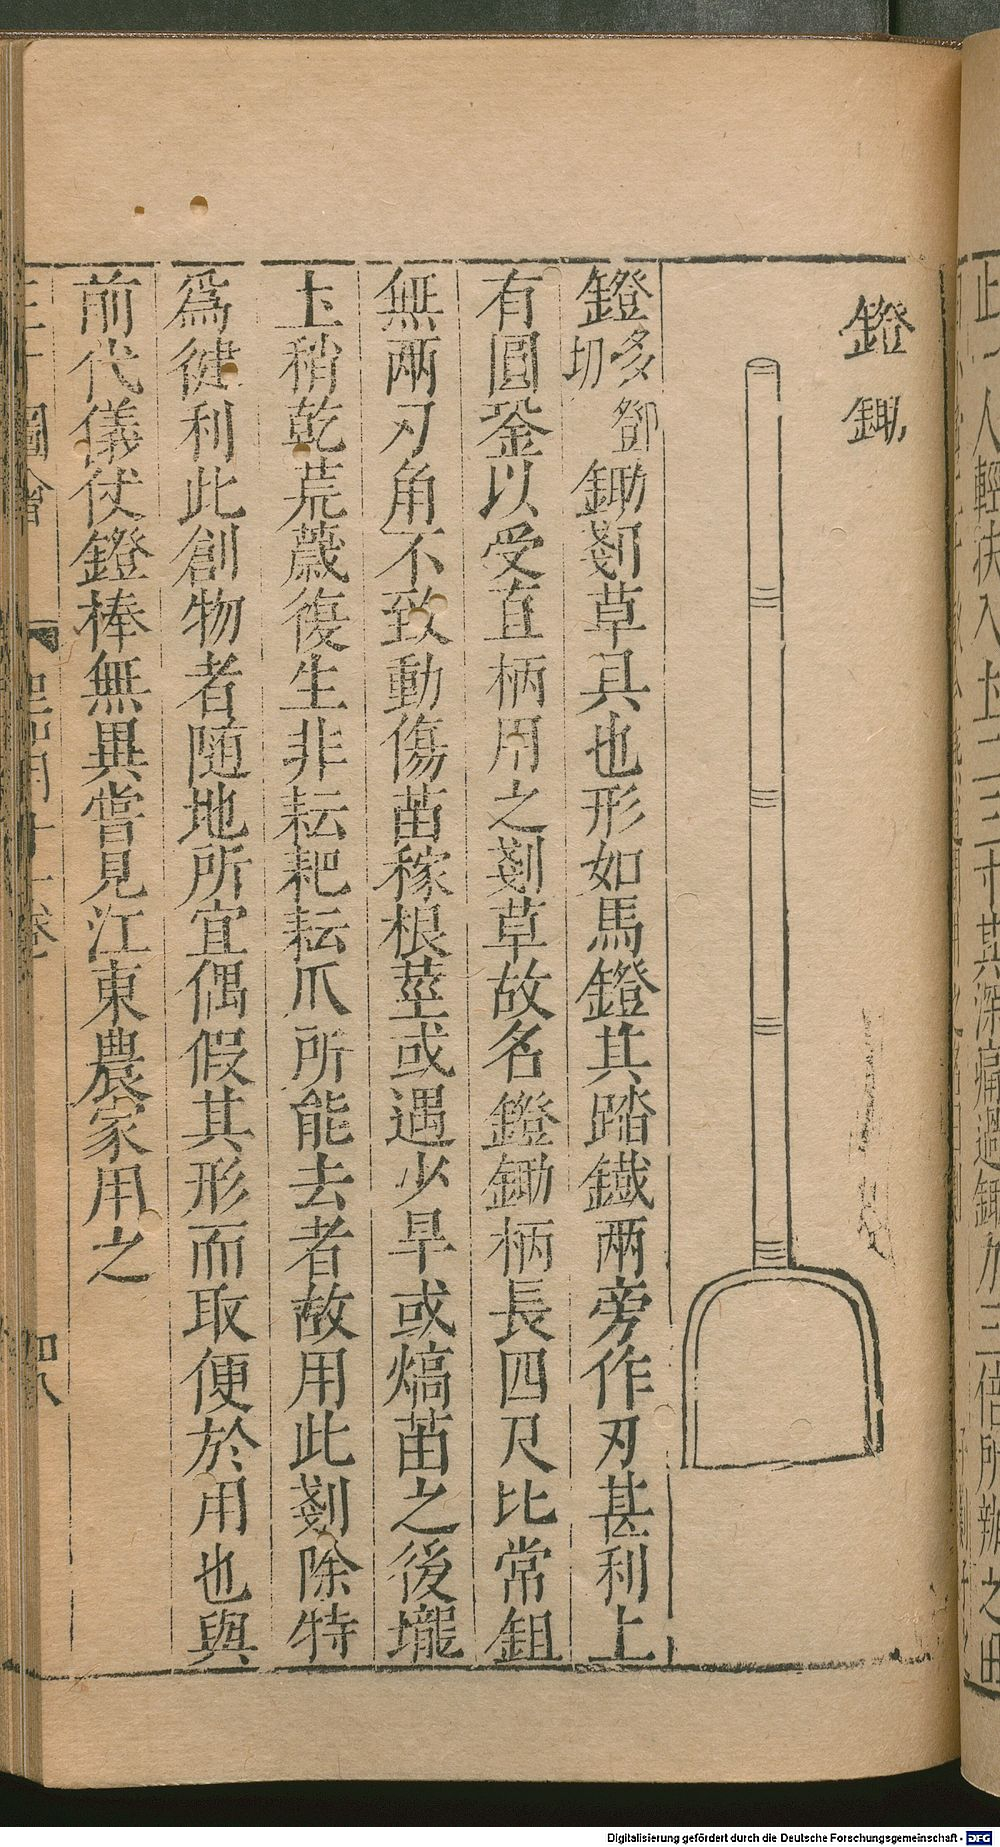 鐙鋤
鐙多鄧切鋤剗草具也形如馬鐙其踏鐵兩旁作刃甚利上
有圓銎以受直柄用之剗草故名鐙鋤柄長四尺比常鉏
無兩刃角不致動傷苗稼根莖或遇少旱或熇苗之後壠
土稍乾荒薉復生非耘耙耘爪所能去者故用此剗除特
爲徤利此創物者隨地所宜偶假其形而取便於用也與
前代儀仗鐙棒無異嘗見江東農家用之
圖會
卷
Digitalisierung gefördert durch die Deutsche Forschungsgemeinschaft - DFG